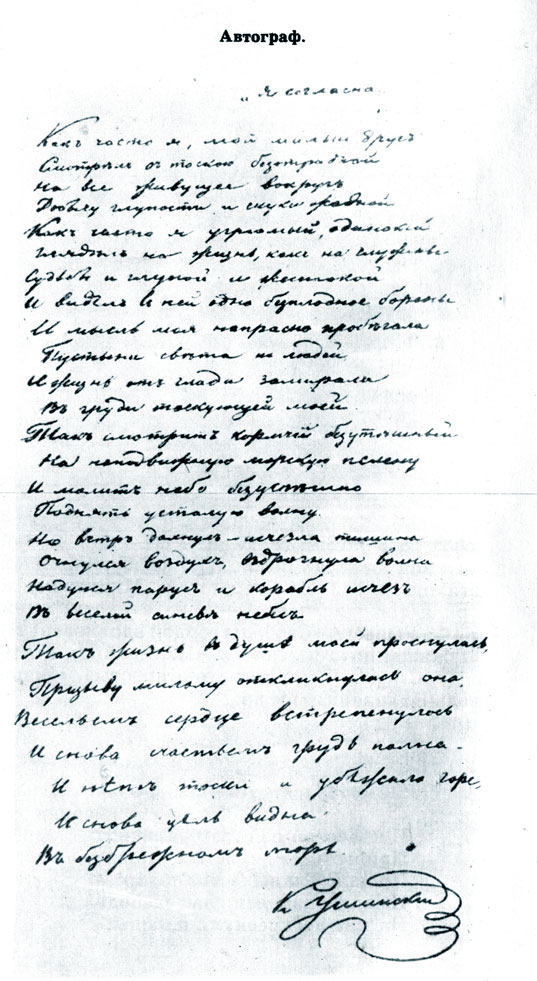 Автограф.
„Я согласна
Какъ часто я, мой милый другъ
Смотрѣлъ съ тоскою безотрадной
На все живущее вокругъ
Добычу глупости и скуки жадной
Какъ часто я угрюмый, одинокій
Глядѣлъ на жизнь, какъ на служенье
Судьбѣ и глупой и жестокой
И видѣлъ в ней одно безплодное боренье
И мысль моя напрасно пробѣгала
Пустыни свѣта и людей
И жизнь отъ глада замирала
Въ груди тоскующей моей
Такъ смотритъ кормчій безутѣшный
На неподвижную морскую пелену
И молитъ небо безуспѣшно
Поднять усталую волну.
Но вѣтръ дохнулъ – исчезла тишина
Очнулся воздухъ, вздрогнула волна
Надулся парусъ и корабль исчезъ
Въ веселой синевѣ небесъ
Такъ жизнь в душѣ моей проснулась,
Призыву милому откликнулась она,
Весельемъ сердце встрепенулось
И снова счастьемъ грудь полна –
И нѣтъ тоски и убѣжало горе,
И снова цѣль видна
Въ безбрежномъ морѣ
К Ушинскій